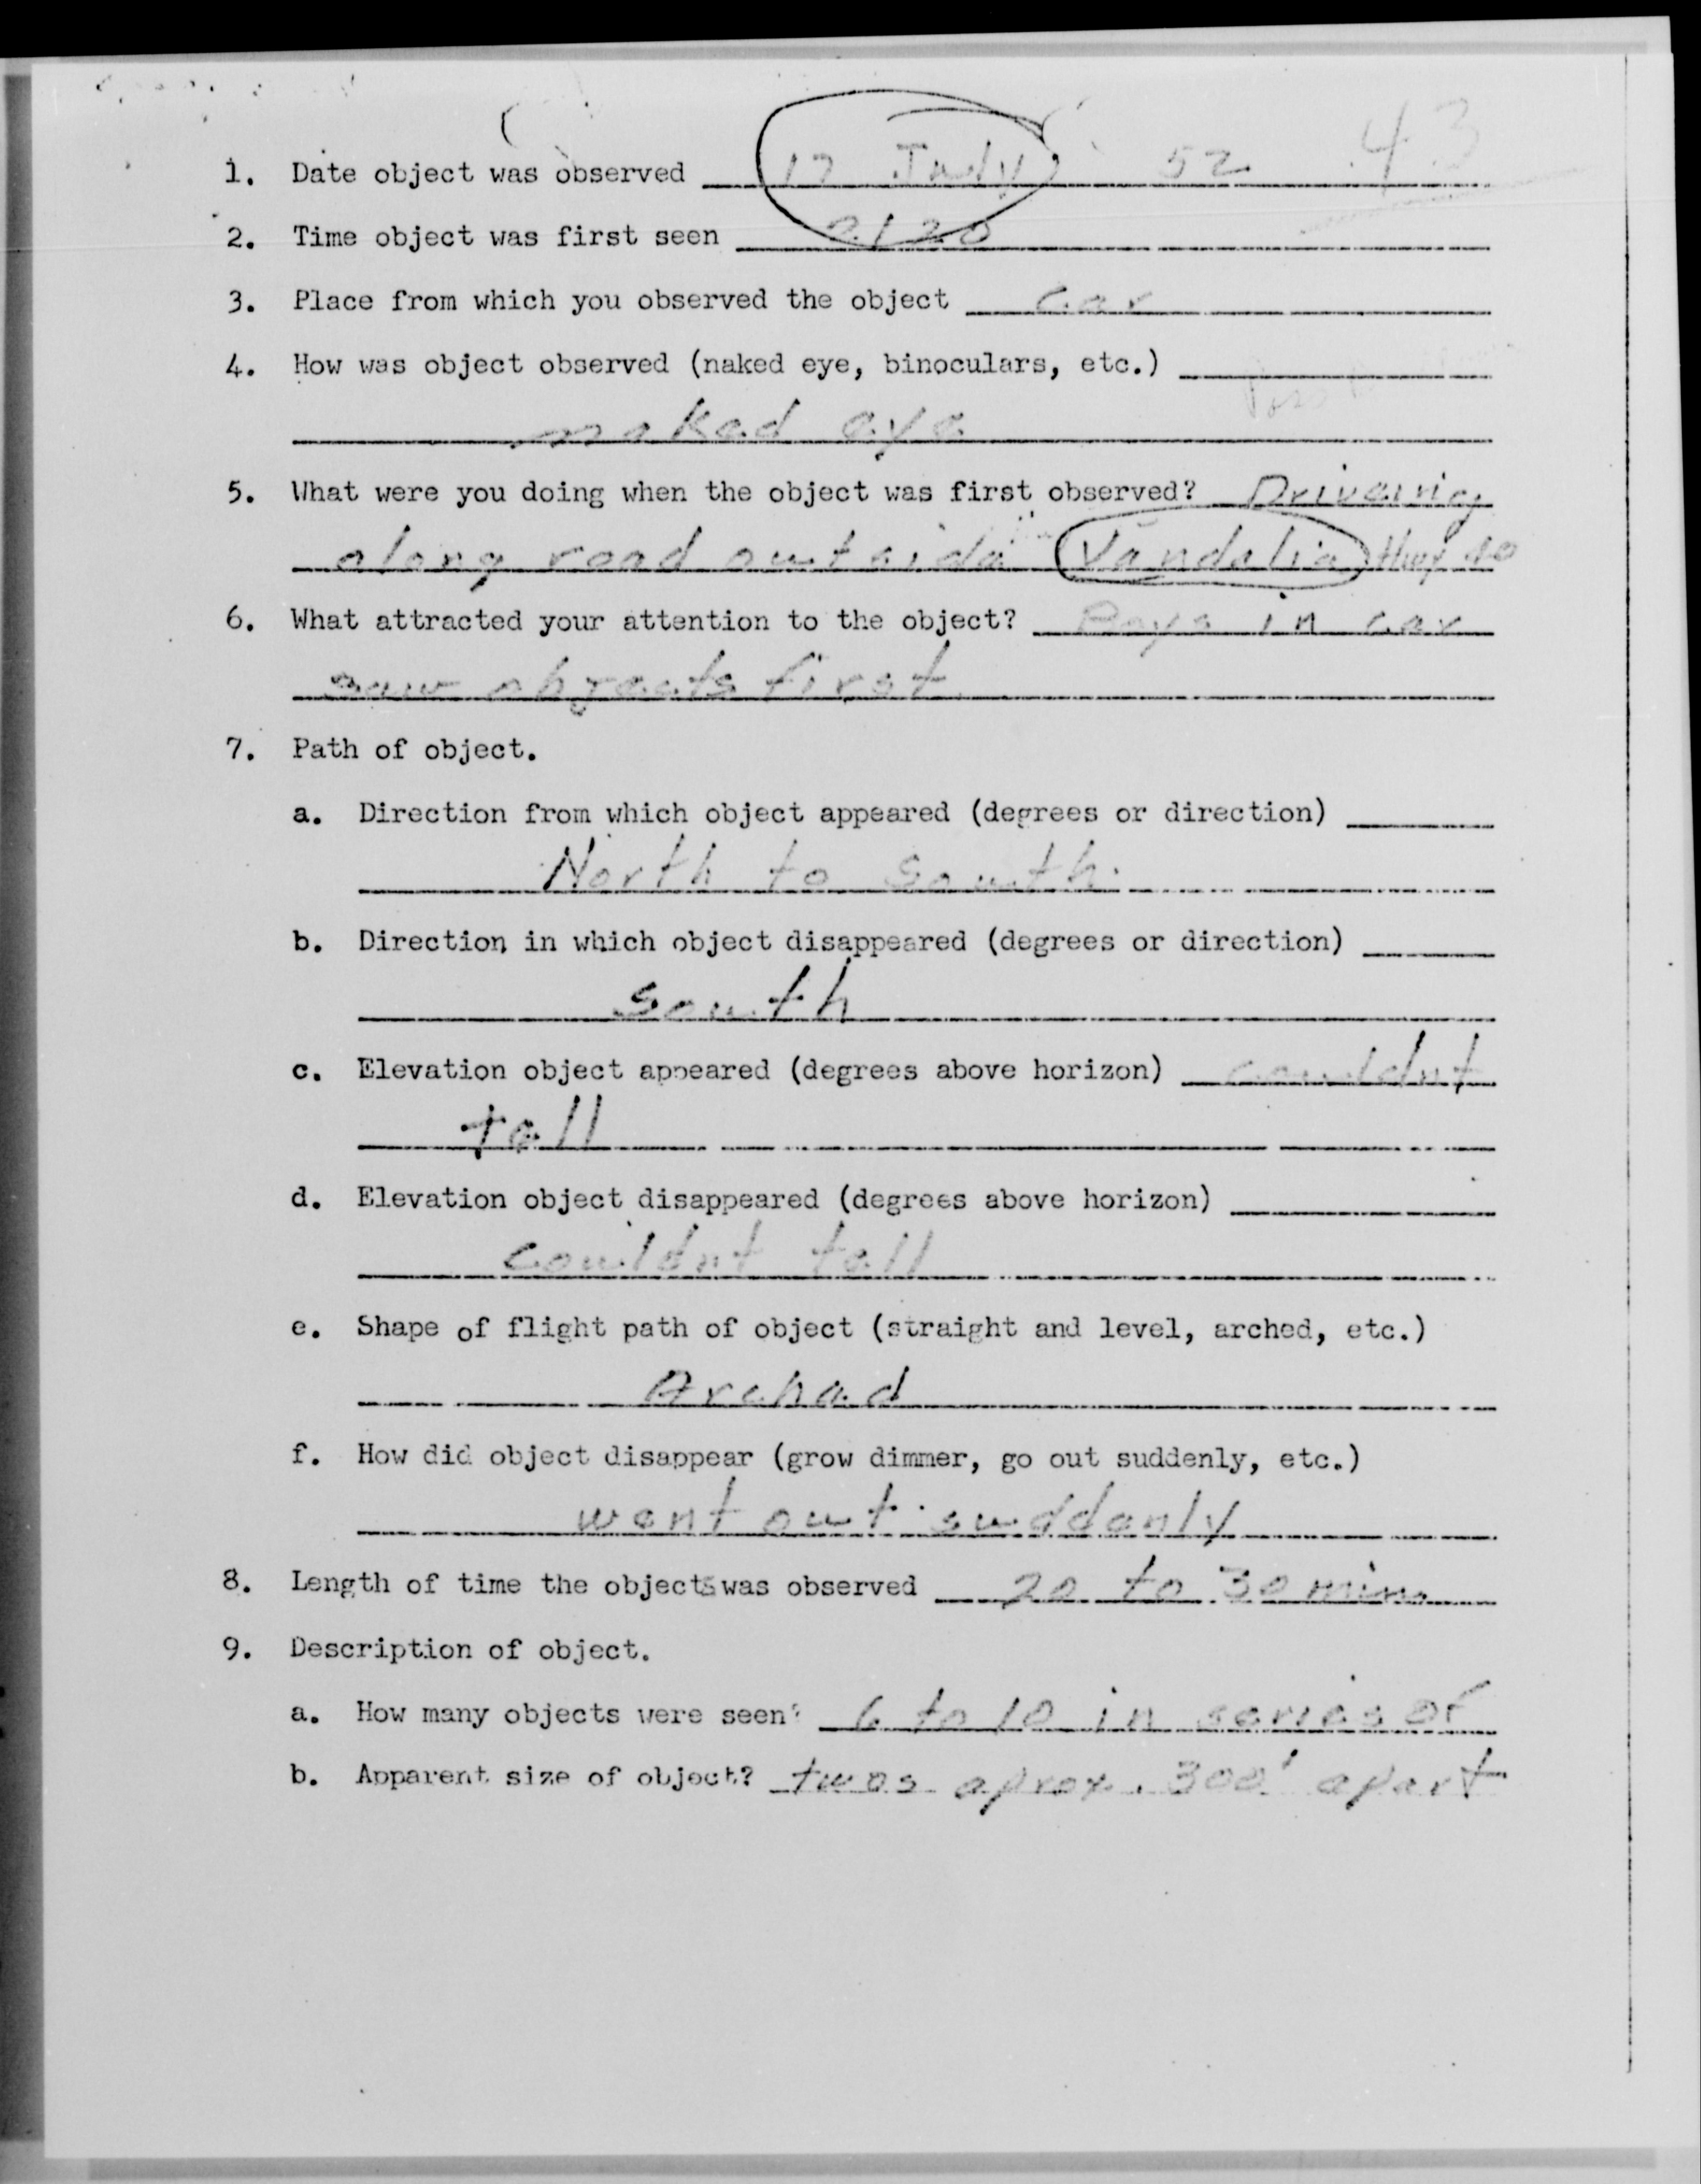 43
1. Date object was observed 17 July 52
2. Time object was first seen 2120
3. Place from which you observed the object Car
4. How was object observed (naked eye, binoculars, etc.)
naked eye
5. What were you doing when the object was first observed? Driveing
along road outside Vandalia Hwy 40
6. What attracted your attention to the object? Boys in car
saw objects first
7. Path of object.
a. Direction from which object appeared (degrees or direction)
North to South
b. Direction in which object disappeared (degrees or direction)
South
c. Elevation object appeared (degrees above horizon) couldnt
tell
d. Elevation object disappeared (degrees above horizon)
couldnt tell
e. Shape of flight path of object (straight and level, arched, etc.)
Arched
f. How did object disappear (grow dimmer, go out suddenly, etc.)
went out suddenly
8. Length of time the objects was observed 20 to 30 min.
9. Description of object.
a. How many objects were seen? 6 to 10 in series of
b. Apparent size of object? twos aprox. 300' apart